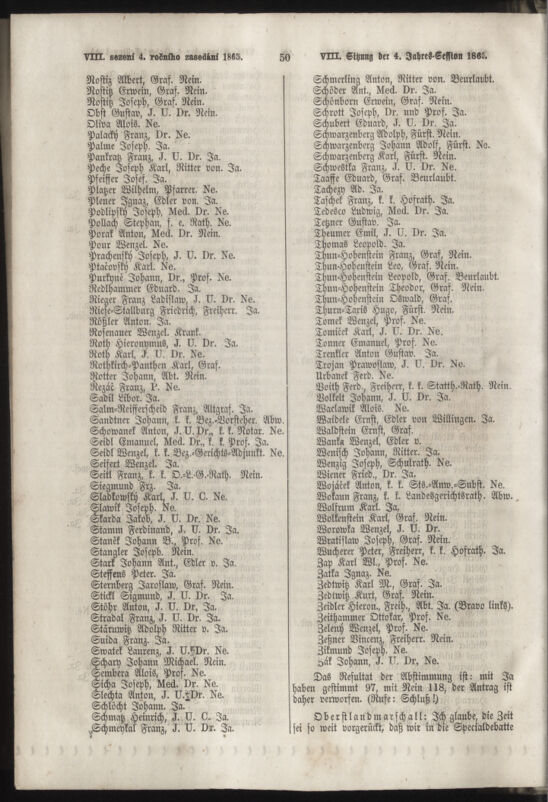 VIII. sezení 4. ročního zasedání 1865.
50
VIII. Sitzung der 4. Jahres-Session 1865.
Nostitz Albert, Graf. Nein.
Nostitz Erwein, Graf. Nein.
Nostitz Joseph, Graf. Nein.
Obst Gustav, J. U. Dr. Nein.
Oliva Alois. Ne.
Palacký Franz, Dr. Ne.
Palme Joseph. Ja.
Pankratz Franz, J. U. Dr. Ja.
Peche Joseph Karl, Ritter von. Ja.
Pfeiffer Josef. Ja.
Platzer Wilhelm, Pfarrer. Ne.
Plener Ignaz, Edler von. Ja.
Podlipský Joseph, Med. Dr. Ne.
Pollach Stephan, f. e. Rath. Ne.
Porak Anton, Med. Dr. Nein.
Pour Wenzel. Ne.
Prachenský Joseph, J. U. Dr. Ne.
Ptačovský Karl. Ne.
Purkyně Johann, Dr., Prof. Ne.
Redlhammer Eduard. Ja.
Rieger Franz Ladislaw, J. U. Dr. Ne.
Riese-Stallburg Friedrich, Freiherr. Ja.
Rößler Anton. Ja.
Rosenauer Wenzel. Krank.
Roth Hieronymus, J. U. Dr. Ja.
Roth Karl, J. U. Dr. Ne.
Rothkirch-Panthen Karl, Graf.
Rotter Johann, Abt. Nein.
Rezáč Franz, P. Ne.
Sadil Libor. Ja.
Salm-Reifferscheid Franz, Altgraf. Ja.
Sandtner Johann, k. k. Bez.-Vorsteher. Abw.
Schowanek Anton, J. U. Dr., k. k. Notar. Ne.
Seidl Emanuel, Med. Dr., k. k. Prof. Ja.
Seidl Wenzel, k. k. Bez.-Gerichts-Adjunkt. Ne.
Seifert Wenzel. Ja.
Seitl Franz, k. k. O.-L.-G.-Rath. Nein.
Siegmund Frz. Ja.
Sladkowský Karl, J. U. C. Ne.
Slawik Joseph. Ne.
Skarda Jakob, J. U. Dr. Ne.
Stamm Ferdinand, J. U. Dr. Ja.
Staněk Johann B., Prof. Ne.
Stangler Joseph. Nein.
Stark Johann Ant., Edler v. Ja.
Steffens Peter. Ja.
Sternberg Jaroslaw, Graf. Nein.
Stickl Sigmund, J. U. Dr. Ja.
Stöhr Anton, J. U. Dr. Ja.
Stradal Franz, J. U. Dr. Ja.
Stárnwitz Adolph Ritter v. Ja.
Suida Franz. Ja.
Swatek Laurenz, J. U. Dr. Ne.
Schary Johann Michael. Nein.
Sembera Alois, Prof. Ne.
Sicha Joseph, Med. Dr. Ne.
Slechta Anton, J. U. Dr. Ne.
Schlöcht Johann. Ja.
Schmatz Heinrich, J. U. C. Ja.
Schmeykal Franz, J. U. Dr. Ja.
Schmerling Anton, Ritter von. Beurlaubt.
Schöder Ant., Med. Dr. Ja.
Schönborn Erwein, Graf. Nein.
Schrott Joseph, Dr. und Prof. Ja.
Schubert Eduard, J. U. Dr. Ja.
Schwarzenberg Adolph, Fürst. Nein.
Schwarzenberg Johann Adolf, Fürst. Ne.
Schwarzenberg Karl, Fürst. Nein.
Schwestka Franz, J. U. Dr. Ne.
Taaffe Eduard, Graf. Beurlaubt.
Tachezy Ad. Ja.
Taschek Franz, k. k. Hofrath. Ja.
Tedesco Ludwig, Med. Dr. Ja.
Tetzner Gustav. Ja.
Theumer Emil, J. U. Dr. Ja.
Thomas Leopold. Ja.
Thun-Hohenstein Franz, Graf, Nein.
Thun-Hohenstein Leo, Graf. Nein.
Thun-Hohenstein Leopold, Graf. Beurlaubt.
Thun-Hohenstein Theodor, Graf. Nein.
Thun-Hohenstein Oswald, Graf.
Thurn-Taris Hugo, Fürst. Nein.
Tomek Wenzel, Prof. Ne.
Tomiček Karl, J. U. Dr. Ne.
Tonner Emanuel, Prof. Ne.
Trenkler Anton Gustav. Ja.
Trojan Prawoslaw, J. U. Dr. Ne.
Urbanek Ferd. Ne.
Voith Ferd., Freiherr, k. k. Statth.-Rath. Nein.
Volkelt Johann, J. U. Dr. Ja.
Waclawik Alois. Ne.
Waidele Ernst, Edler von Willingen. Ja.
Waldstein Ernst, Graf.
Wanka Wenzel, Edler v.
Wenisch Johann, Ritter. Ja.
Wenzig Joseph, Schulrath. Ne.
Wiener Fried., Dr. Ja.
Wokaun Anton, k. k. Sts.-Anw.-Subst. Ne.
Wokaun Franz, k. k. Landesgerichtsrath. Abw.
Wolfrum Karl. Ja.
Wolkenstein Karl, Graf. Nein.
Worowka Wenzel, J. U. Dr.
Wratislaw Joseph, Graf. Nein.
Wucherer Peter, Freiherr, k. k. Hofrath. Ja.
Zap Karl Wl., Prof. Ne.
Zatka Ignaz. Ne.
Zedtwitz Karl M., Graf. Ja.
Zedtwitz Kurt, Graf. Nein.
Zeidler Hieron., Freih., Abt. Ja (Bravo links).
Zeithammer Ottokar, Prof. Ne.
Zelený Wenzel, Prof. Ne.
Zeßner Vincenz, Freiherr. Nein.
Zikmund Joseph. Ne.
Žák Johann, J. U. Dr, Ne.
Das Resultat der Abstimmung ist: mit Ja
haben gestimmt 97, mit Nein 118, der Antrag ist
daher verworfen. (Rufe: Schluß!)
Oberstlandmarschall: Ich glaube, die Zeit
sei so weit vorgerückt, daß wir in die Specialdebatte